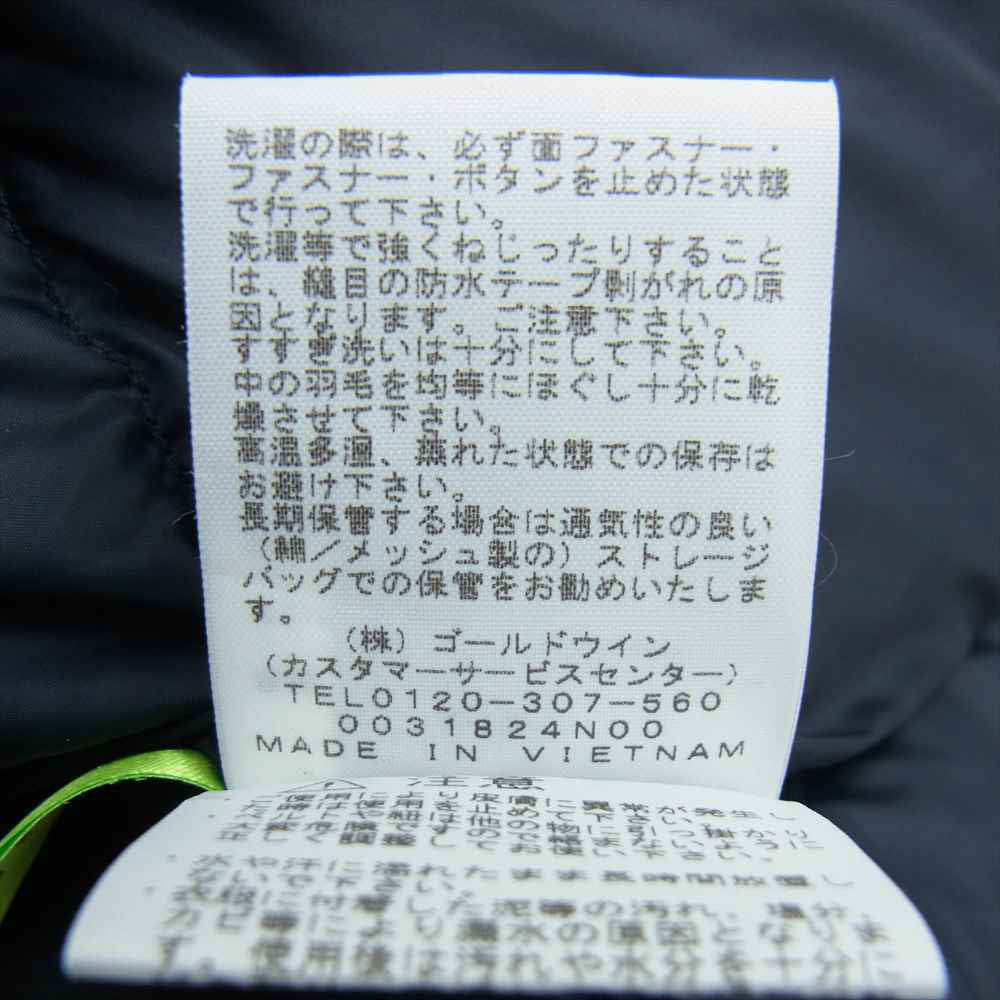 洗濯の際は、必ず面ファスナー・
ファスナー・ボタンを止めた状態
で行って下さい。
洗濯等で強くねじったりすること
は、縫目の防水テープ剥がれの原
因となります。ご注意下さい。
すすぎ洗いは十分にして下さい。
中の羽毛を均等にほぐし十分に乾
燥させて下さい。
高温多湿、蒸れた状態での保存は
お避け下さい。
長期保管する場合は通気性の良い
(綿/メッシュ製の)ストレージ
バッグでの保管をお勧めいたしま
す。
(株)ゴールドウイン
(カスタマーサービスセンター)
TEL0120-307-560
0031824N00
MADE IN VIETNAM
注意
皮膚に異常が発生し
水や汗に濡れたまま長時間放置し
に付着した泥等の汚れ、塩分
等により漏水の原因となりま
す。使用後は汚れや水分を十分に